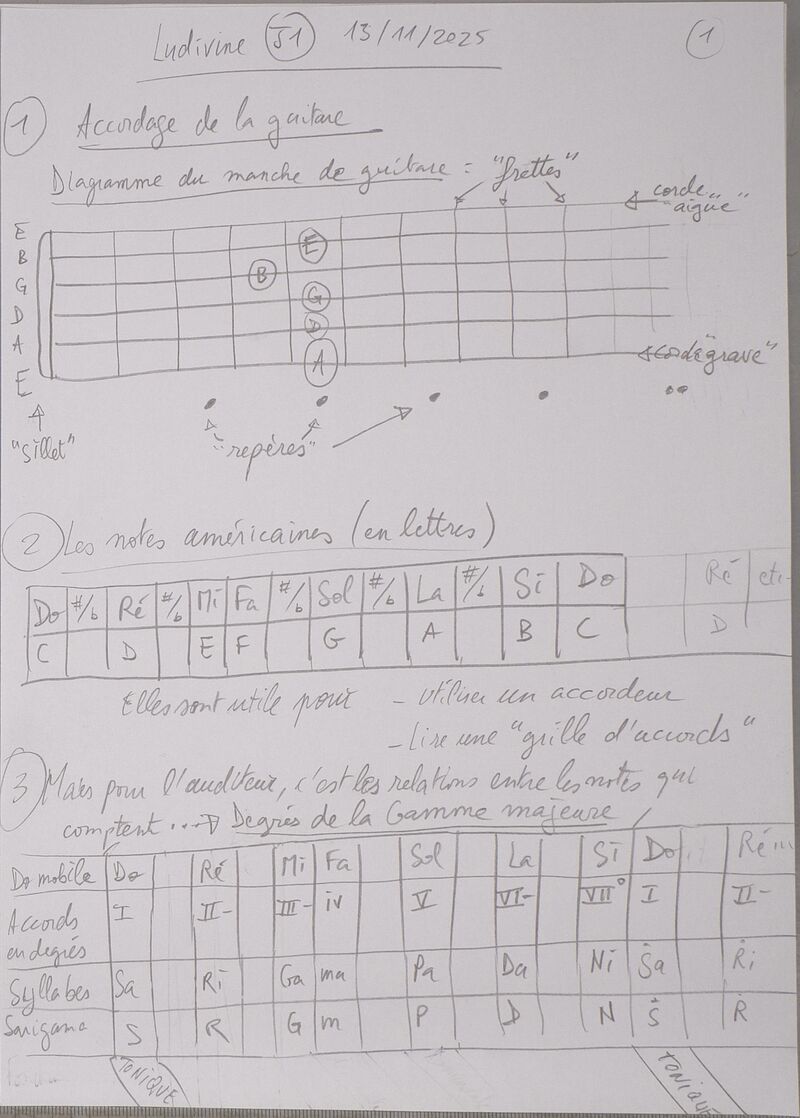 Ludivine J1 13/11/2025 1
1 Accordage de la guitare
Diagramme du manche de guitare = "frettes"
corde "aigüe"
E
B
G
D
A
E
E
B
G
D
A
corde "grave"
"Sillet"
"repères"
2 Les notes américaines (en lettres)
Do #/b Ré #/b Mi Fa #/b Sol #/b La #/b Si Do Ré etc.
C D E F G A B C D
Elles sont utile pour - utiliser un accordeur
- Lire une "grille d'accords"
3 Mais pour l'auditeur, c'est les relations entre les notes qui
comptent ... → Degrés de la Gamme majeure
Do mobile Do Ré Mi Fa Sol La Si Do Ré ...
Accords en degrés I II- III- iv V VI- VII° I II-
Syllabes Sa Ri Ga ma Pa Da Ni Ṡa Ṙi
Sarigama S R G m P D N Ṡ Ṙ
TONIQUE TONIQUE